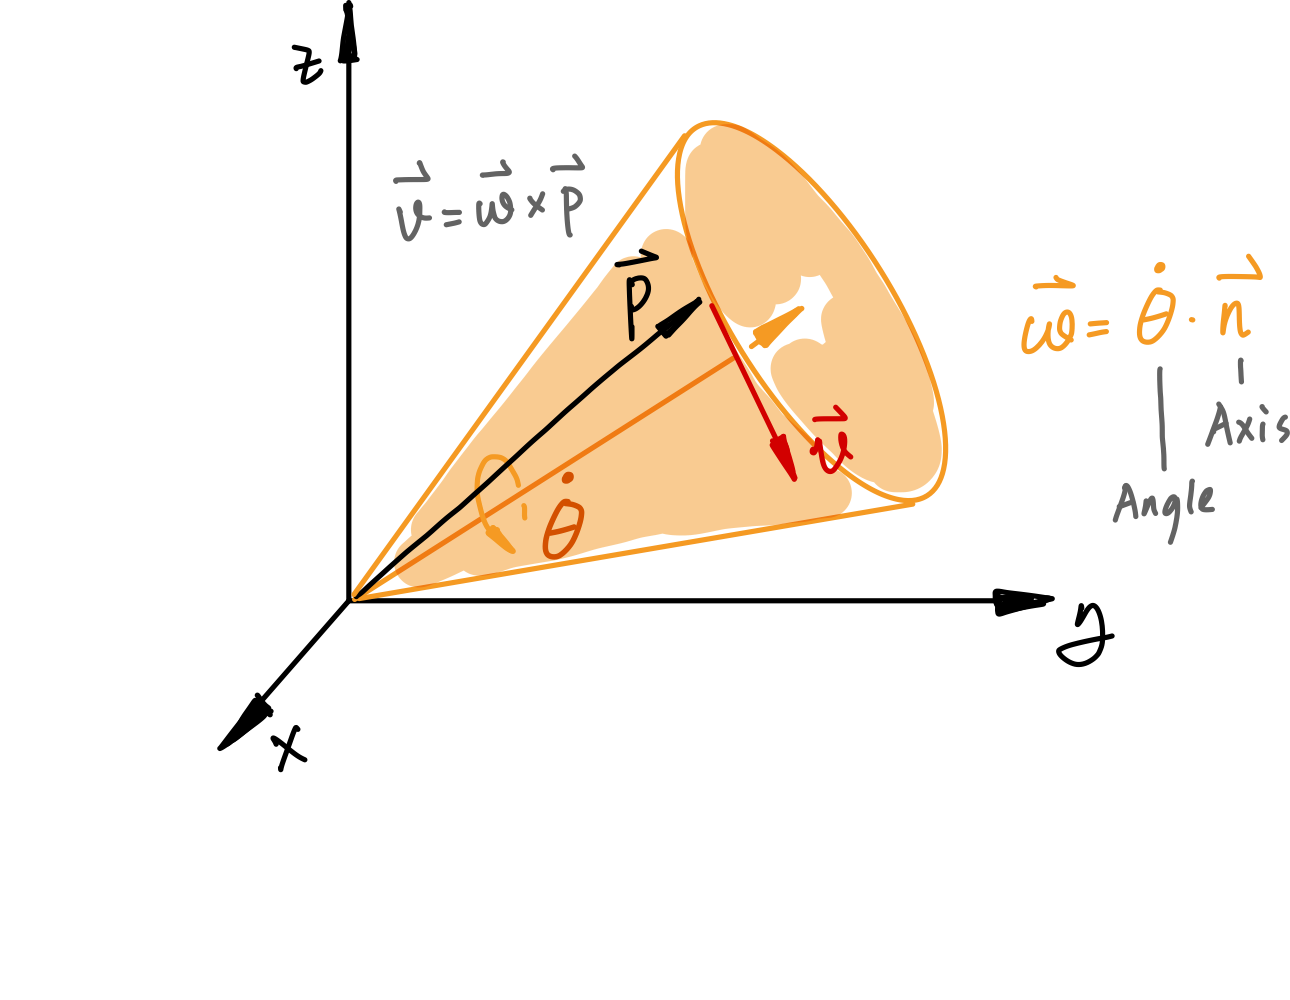 z
v⃗ = w⃗ × p⃗
p⃗
w⃗ = θ̇ · n⃗
Axis
v⃗
Angle
θ̇
y
x